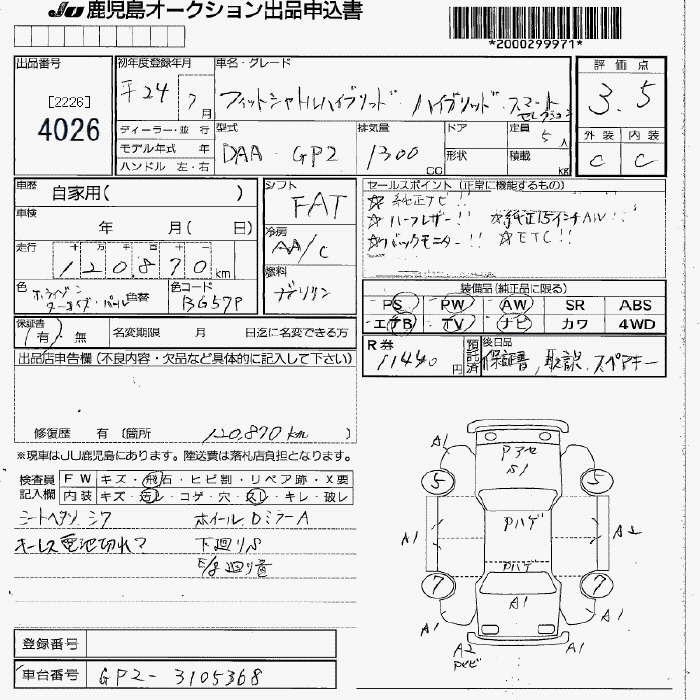 JU 鹿児島オークション出品申込書
*2000299971*
出品番号
[2226]
4026
初年度登録年月
平24 7月
車名・グレード
フィットシャトルハイブリッド・ハイブリッド・スマートセレクション
評価点
3.5
外装 内装
C C
ディーラー・並行
モデル年式 年
ハンドル 左・右
型式
DAA-GP2
排気量
1300 CC
ドア
形状
定員
5人
積載
kg
車歴
自家用( )
車検
年 月( 日)
走行
十 万 千 百 十 一
120,870 km
色
ホライゾンターコイズ・パール
色替
色コード
BG57P
シフト
FAT
冷房
AA/C
燃料
ガソリン
セールスポイント (正常に機能するもの)
☆純正ナビ!!
☆ハーフレザー!! ☆純正15インチAW!!
☆バックモニター!! ☆ETC!!
装備品(純正品に限る)
PS PW AW SR ABS
エアB TV ナビ カワ 4WD
保証書
有・無
名変期限 月 日迄に名変できる方
R券
11440円
預託済
後日品
保証書、取説、スペアキー
出品店申告欄(不良内容・欠品など具体的に記入して下さい)
修復歴 有 (箇所
120,870km)
※現車はJU鹿児島にあります。陸送費は落札店負担となります。
検査員記入欄
FW キズ・飛石・ヒビ割・リペア跡・X要
内装 キズ・汚レ・コゲ・穴・スレ・キレ・破レ
シートヘタリ シワ ホイール DミラーA
キーレス電池切れ? 下廻りS
E/g廻り音
登録番号
車台番号
GP2-3105368
A1
Pアセ
S1
A1
5
5
A1
Pハゲ
A2
Pハゲ
7
7
A1
A1
A1
A2